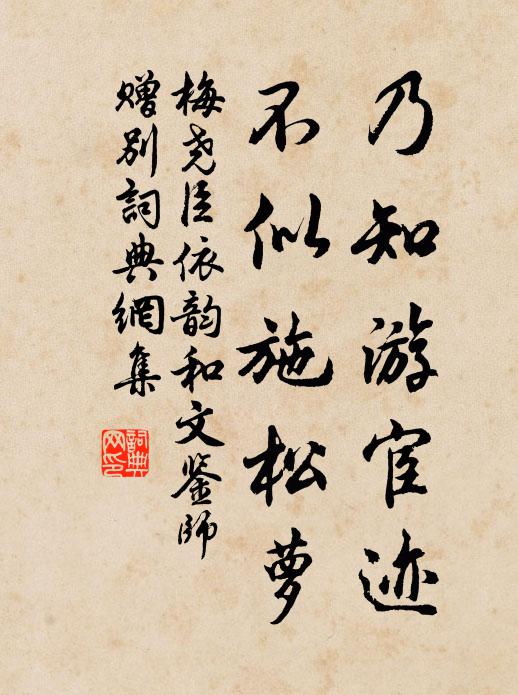 乃知游宦迹
不似施松萝
梅尧臣依韵和文鉴师
赠别词典網集
詞典网印